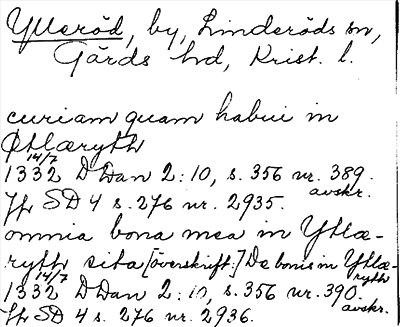 Ylleröd, by, Linderöds sn,
Gärds hd, Krist. l.
curiam quam habui in
Øtlæryth
14/7
1332 D Dan 2:10, s. 356 nr. 389.
avskr.
Jfr SD 4 s. 276 nr. 2935.
omnia bona mea in Ytlæ-
ryth sita [överskrift:] De bonis in Ythlæ-
ryth
14/7
1332 D Dan 2:10, s. 356 nr. 390.
avskr.
Jfr SD 4 s. 276 nr. 2936.